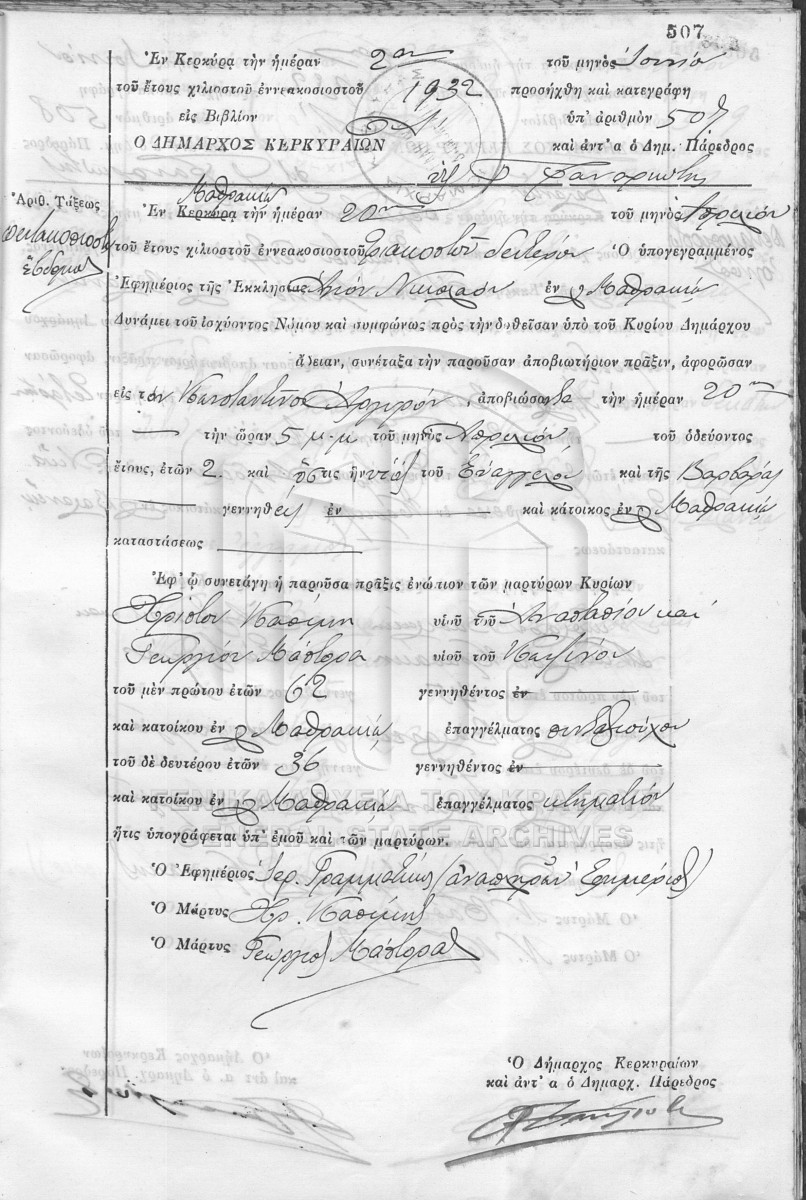 507
Ἐν Κερκύρᾳ τὴν ἡμέραν 2αν τοῦ μηνὸς Ἰουνίου
τοῦ ἔτους χιλιοστοῦ ἐννεακοσιοστοῦ 1932 προσήχθη καὶ κατεγράφη
εἰς Βιβλίον Α ὑπ' ἀριθμὸν 507
Ο ΔΗΜΑΡΧΟΣ ΚΕΡΚΥΡΑΙΩΝ καὶ ἀντ' α ὁ Δημ. Πάρεδρος
Ἀριθ. Τάξεως
πεντακοσιοστὴ
ἑβδόμη
Μαθρακίῳ
Ἐν Κερκύρᾳ τὴν ἡμέραν 20ην τοῦ μηνὸς Ἀπριλίου
τοῦ ἔτους χιλιοστοῦ ἐννεακοσιοστοῦ τριακοστοῦ δευτέρου Ὁ ὑπογεγραμμένος
Ἐφημέριος τῆς Ἐκκλησίας Ἁγίου Νικολάου ἐν Μαθρακίῳ
Δυνάμει τοῦ ἰσχύοντος Νόμου καὶ συμφώνως πρὸς τὴν δοθεῖσαν ὑπὸ τοῦ Κυρίου Δημάρχου
ἄδειαν, συνέταξα τὴν παροῦσαν ἀποβιωτήριον πρᾶξιν, ἀφορῶσαν
εἰς τὸν Κωνσταντῖνος Ἀργυρὸν, ἀποβιώσαντα τὴν ἡμέραν 20ην
τὴν ὥραν 5 μ.μ τοῦ μηνὸς Ἀπριλίου τοῦ ὁδεύοντος
ἔτους, ἐτῶν 2. καὶ ὅστις ἦν υἱὸς τοῦ Εὐαγγέλου καὶ τῆς Βαρβάρας
γεννηθεὶς ἐν καὶ κάτοικος ἐν Μαθρακίῳ
καταστάσεως
Ἐφ' ᾧ συνετάγη ἡ παροῦσα πρᾶξις ἐνώπιον τῶν μαρτύρων Κυρίων
Χρίστου Κασίμη υἱοῦ τοῦ Ἀναστασίου καὶ
Γεωργίου Μάστορα υἱοῦ τοῦ
τοῦ μὲν πρώτου ἐτῶν 62 γεννηθέντος ἐν
καὶ κατοίκου ἐν Μαθρακίῳ ἐπαγγέλματος συνταξιούχου
τοῦ δὲ δευτέρου ἐτῶν 36 γεννηθέντος ἐν
καὶ κατοίκου ἐν Μαθρακίῳ ἐπαγγέλματος κτηματίου
ΓΕΝΙΚΑ ΑΡΧΕΙΑ ΤΟΥ ΚΡΑΤΟΥΣ
GENERAL STATE ARCHIVES
ἥτις ὑπογράφεται ὑπ' ἐμοῦ καὶ τῶν μαρτύρων.
Ὁ Ἐφημέριος Ἱερ. Γραμματικὸς (ἀναπληρῶν Ἐφημέριος)
Ὁ Μάρτυς Χρ. Κασίμης
Ὁ Μάρτυς Γεώργιος Μάστορας
Ὁ Δήμαρχος Κερκυραίων
καὶ ἀντ' α ὁ Δημαρχ. Πάρεδρος